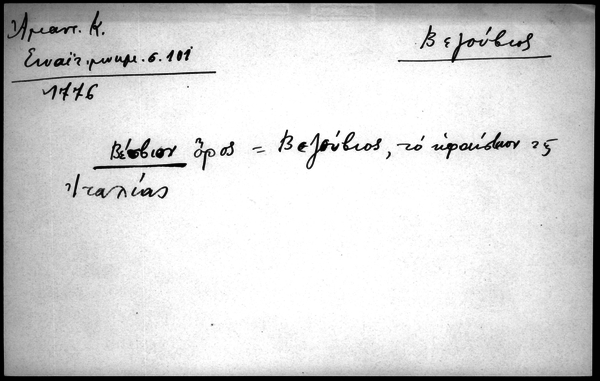 Ἄμαντ. Κ.
Σιναϊτ. μνημ. σ. 101
1776
Βεζούβιος
Βέσβιον ὄρος = Βεζούβιος, τό ἡφαίστειον τῆς
Ἰταλίας